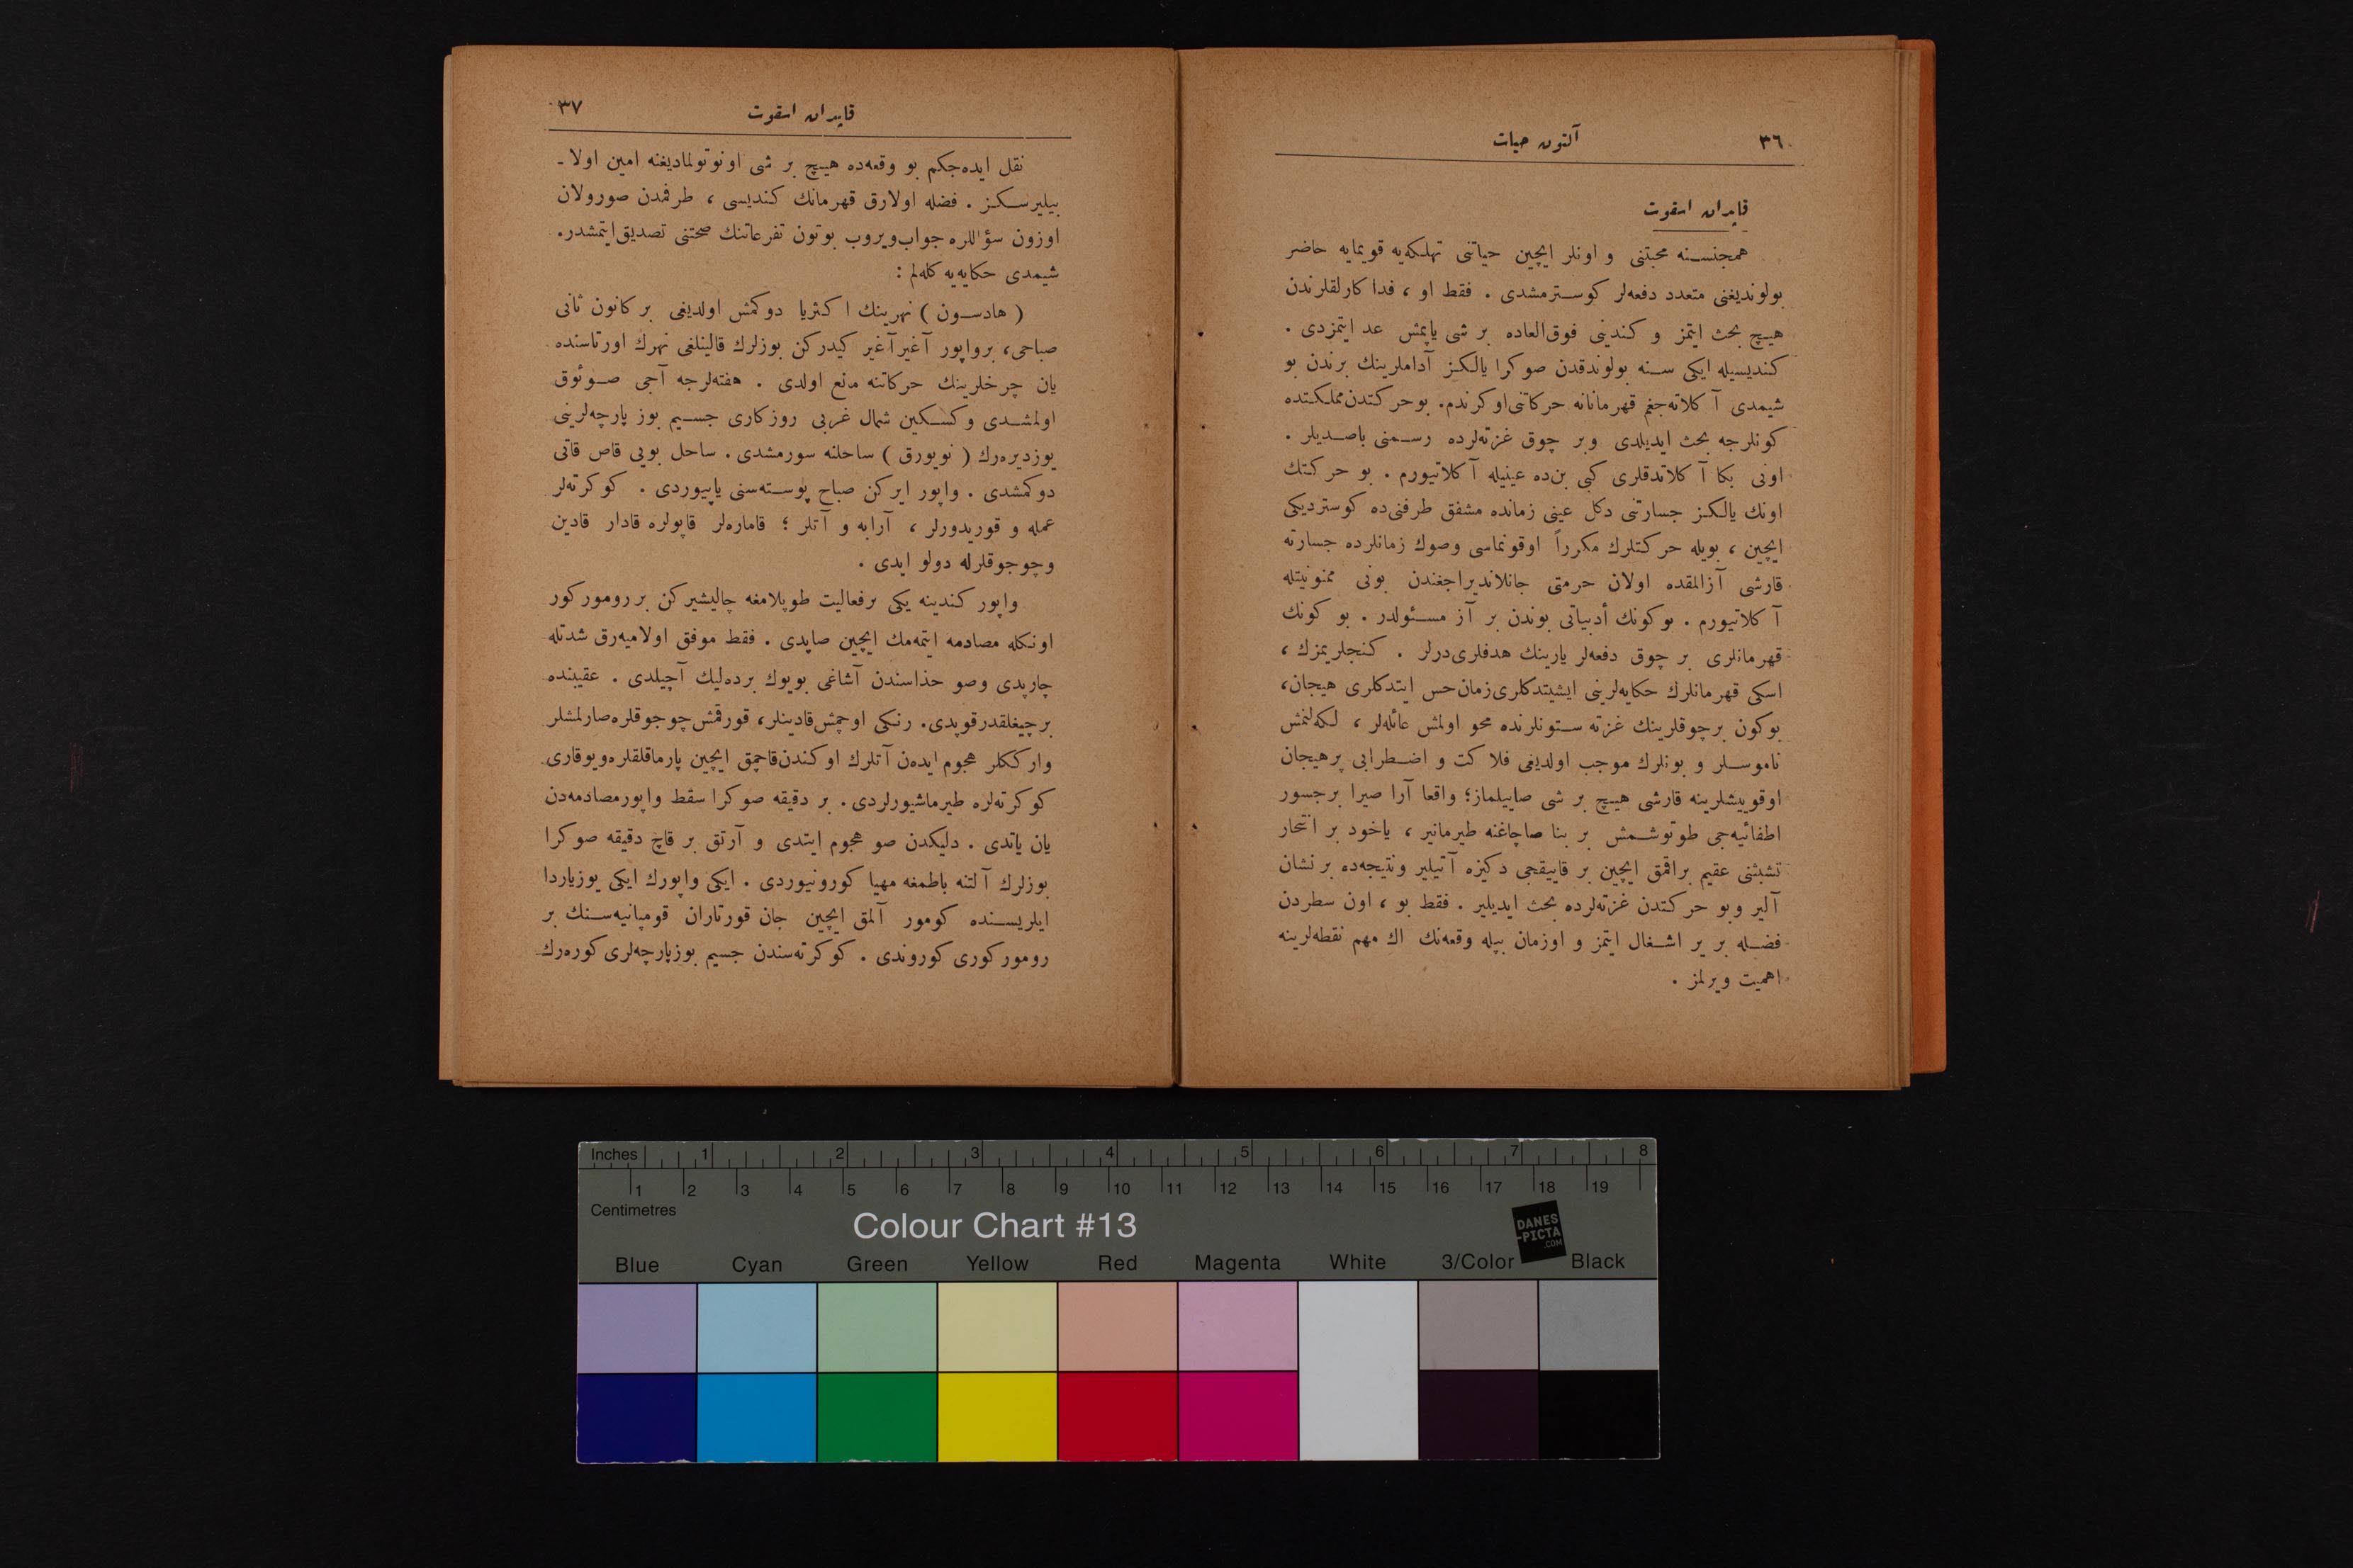 ٣٦
آلتون حيات
قاپدان اسقوت
همجنسنه محبتنى و اونلر ايچين حياتنى تهلكه‌يه قويمايه حاضر
بولونديغنى متعدد دفعه‌لر كوسترمشدى . فقط او ، فداكارلقلرندن
هيچ بحث ايتمز و كندينى فوق‌العاده بر شى ياپمش عد ايتمزدى .
كنديسيله ايكى سنه بولوندقدن صوكرا يالكز آداملرينك برندن بو
شيمدى آكلاته‌جغم قهرمانانه حركاتنى اوكرندم. بو حركتدن مملكتده
كونلرجه بحث ايديلدى وبر چوق غزته‌لرده رسمنى باصديلر .
اونى بكا آكلاتدقلرى كبى بن‌ده عينيله آكلاتيورم . بو حركتك
اونك يالكز جسارتنى دكل عينى زمانده مشفق طرفنى‌ده كوسترديكى
ايچين ، بويله حركتلرك مكرراً اوقونماسى وصوك زمانلرده جسارته
قارشى آزالمقده اولان حرمتى جانلانديراجغندن بونى ممنونيتله
آكلاتيورم . بوكونك أدبياتى بوندن بر آز مسئولدر . بو كونك
قهرمانلرى بر چوق دفعه‌لر يارينك هدفلرى‌درلر . كنجلريمزك ،
اسكى قهرمانلرك حكايه‌لرينى ايشيتدكلرى زمان حس ايتدكلرى هيجان،
بوكون برچوقلرينك غزته ستونلرنده محو اولمش عائله‌لر ، لكه‌لنمش
ناموسلر و بونلرك موجب اولديغى فلاكت و اضطرابى پرهيجان
اوقوييشلرينه قارشى هيچ بر شى صاييلماز؛ واقعا آرا صيرا برجسور
اطفائيه‌جى طوتوشمش بر بنا صاچاغنه طيرمانير ، ياخود بر انتحار
تشبثنى عقيم براقمق ايچين بر قاييقجى دكيزه آتيلير ونتيجه‌ده بر نشان
آلير وبو حركتدن غزته‌لرده بحث ايديلير . فقط بو ، اون سطردن
فضله بر ير اشغال ايتمز و اوزمان بيله وقعه‌نك اك مهم نقطه‌لرينه
اهميت ويرلمز .
قاپدان اسقوت
٣٧
نقل ايده‌جكم بو وقعه‌ده هيچ بر شى اونوتولماديغنه امين اولا-
بيليرسكز . فضله اولارق قهرمانك كنديسى ، طرفمدن صورولان
اوزون سؤاللره جواب ويروب بوتون تفرعاتنك صحتنى تصديق ايتمشدر.
شيمدى حكايه‌يه كله‌لم :
( هادسون ) نهرينك اكثريا دوكمش اولديغى بر كانون ثانى
صباحى، برواپور آغير آغير كيدركن بوزلرك قالينلغى نهرك اورتاسنده
يان چرخلرينك حركاتنه مانع اولدى . هفته‌لرجه آجى صوئوق
اولمشدى وكسكين شمال غربى روزكارى جسيم بوز پارچه‌لرينى
يوزديره‌رك ( نويورق ) ساحلنه سورمشدى. ساحل بويى قاص قاتى
دوكمشدى . واپور ايركن صباح پوسته‌سنى ياپيوردى . كوكرته‌لر
عمله و قوريدورلر ، آرابه و آتلر ؛ قاماره‌لر قاپولره قادار قادين
وچوجوقلرله دولو ايدى .
واپور كندينه يكى برفعاليت طوپلامغه چاليشيركن بر رومور كور
اونكله مصادمه ايتمه‌مك ايچين صاپدى . فقط موفق اولاميه‌رق شدتله
چارپدى وصو حذاسندن آشاغى بويوك برده‌ليك آچيلدى . عقبنده
برچيغلقدر قوپدى. رنكى اوچمش قادينلر، قورقمش چوجوقلره صارلمشلر
واركلر هجوم ايده‌ن آتلرك اوكندن قاچمق ايچين پارماقلقلره ويوقارى
كوكرته‌لره طيرماشيورلردى. بر دقيقه صوكرا سقط واپور مصادمه‌دن
يان ياتدى . دليكدن صو هجوم ايتدى و آرتق بر قاچ دقيقه صوكرا
بوزلرك آلتنه باطمغه مهيا كورونيوردى . ايكى واپورك ايكى يوزياردا
ايلريسنده كومور آلمق ايچين جان قورتاران قومپانيه‌سنك بر
رومور كورى كوروندى . كوكرته‌سندن جسيم بوزپارچه‌لرى كوره‌رك
Inches 1 2 3 4 5 6 7 8
1 2 3 4 5 6 7 8 9 10 11 12 13 14 15 16 17 18 19
Centimetres
Colour Chart #13
DANES
-PICTA
.COM
Blue Cyan Green Yellow Red Magenta White 3/Color Black